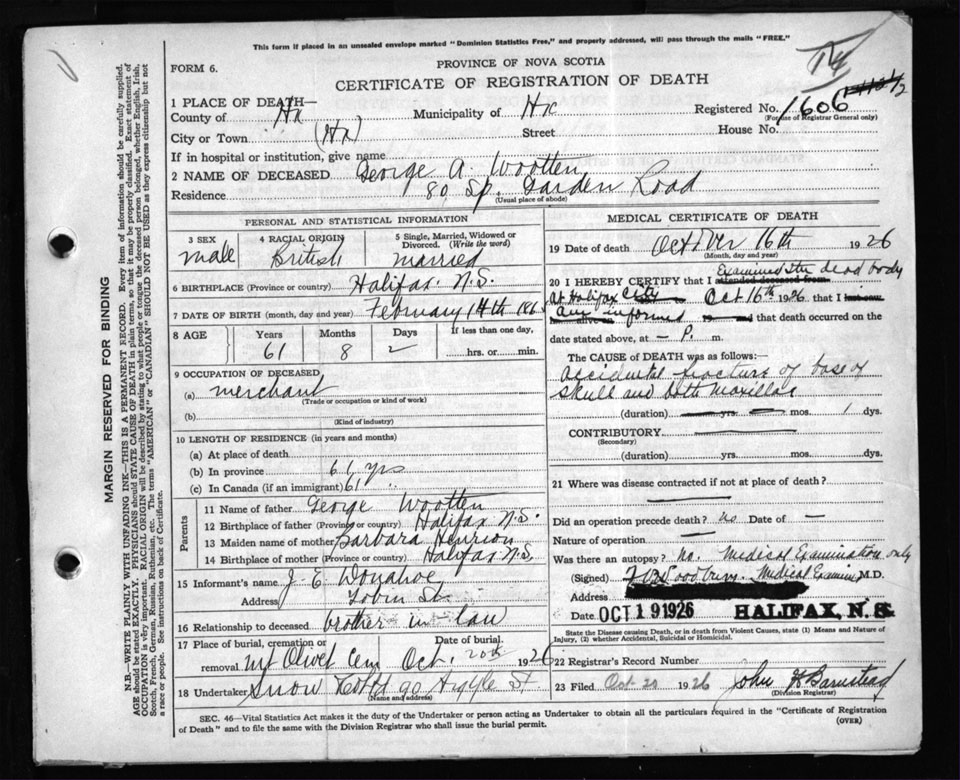 This form if placed in an unsealed envelope marked "Dominion Statistics Free," and properly addressed, will pass through the mails "FREE."
FORM 6.
PROVINCE OF NOVA SCOTIA
CERTIFICATE OF REGISTRATION OF DEATH
1 PLACE OF DEATH—
County of Hx Municipality of Hx Registered No. 1606
(For use of Registrar General only)
City or Town (Hx) Street House No.
If in hospital or institution, give name
2 NAME OF DECEASED George A. Wootten
Residence 80 Sp. Garden Road
(Usual place of abode)
PERSONAL AND STATISTICAL INFORMATION
3 SEX 4 RACIAL ORIGIN 5 Single, Married, Widowed or Divorced. (Write the word)
male British married
6 BIRTHPLACE (Province or country) Halifax N.S.
7 DATE OF BIRTH (month, day and year) February 14th
8 AGE Years Months Days If less than one day,
61 8 2 hrs. or min.
9 OCCUPATION OF DECEASED
(a) merchant
(Trade or occupation or kind of work)
(b)
(Kind of industry)
10 LENGTH OF RESIDENCE (in years and months)
(a) At place of death
(b) In province 61 yrs
(c) In Canada (if an immigrant) 61 "
Parents
11 Name of father George Wootten
12 Birthplace of father (Province or country) Halifax N.S.
13 Maiden name of mother Barbara Henrion
14 Birthplace of mother (Province or country) Halifax N.S.
15 Informant's name J. E. Donahoe
Address Tobin St
16 Relationship to deceased brother in law
17 Place of burial, cremation or removal Date of burial.
Mt Olivet Cem Oct. 20th 1926
18 Undertaker Snow & Co Ltd 90 Argyle St
(Name and address)
MEDICAL CERTIFICATE OF DEATH
19 Date of death October 16th 1926
(Month, day and year)
20 I HEREBY CERTIFY that I attended deceased from Examined the dead body
At Halifax City Oct 16th 1926 that I last saw
am informed that death occurred on the
date stated above, at — P. m.
The CAUSE of DEATH was as follows:—
Accidental fracture of base of
skull and both maxillae
(duration) yrs. mos. 1 dys.
CONTRIBUTORY
(Secondary)
(duration) yrs. mos. dys.
21 Where was disease contracted if not at place of death?
Did an operation precede death? No Date of —
Nature of operation
Was there an autopsy? No. Medical Examination only
(Signed) Medical Examiner M.D.
Address
Date OCT 19 1926 HALIFAX, N.S.
State the Disease causing Death, or in death from Violent Causes, state (1) Means and Nature of Injury, (2) whether Accidental, Suicidal or Homicidal.
22 Registrar's Record Number
23 Filed Oct 20 1926 John H Barnstead
(Division Registrar)
SEC. 46—Vital Statistics Act makes it the duty of the Undertaker or person acting as Undertaker to obtain all the particulars required in the "Certificate of Registration
of Death" and to file the same with the Division Registrar who shall issue the burial permit. (OVER)
MARGIN RESERVED FOR BINDING
N.B.—WRITE PLAINLY WITH UNFADING INK—THIS IS A PERMANENT RECORD. Every item of information should be carefully supplied.
AGE should be stated EXACTLY. PHYSICIANS should STATE CAUSE OF DEATH in plain terms, so that it may be properly classified. Exact statement of
OCCUPATION is very important. RACIAL ORIGIN will be described by stating to what people or tongue the deceased person belonged, whether English, Irish,
Scotch, French, German, Russian, Ruthenian, etc. The terms "AMERICAN" or "CANADIAN" SHOULD NOT BE USED as they express citizenship but not
a race or people. See instructions on back of Certificate.